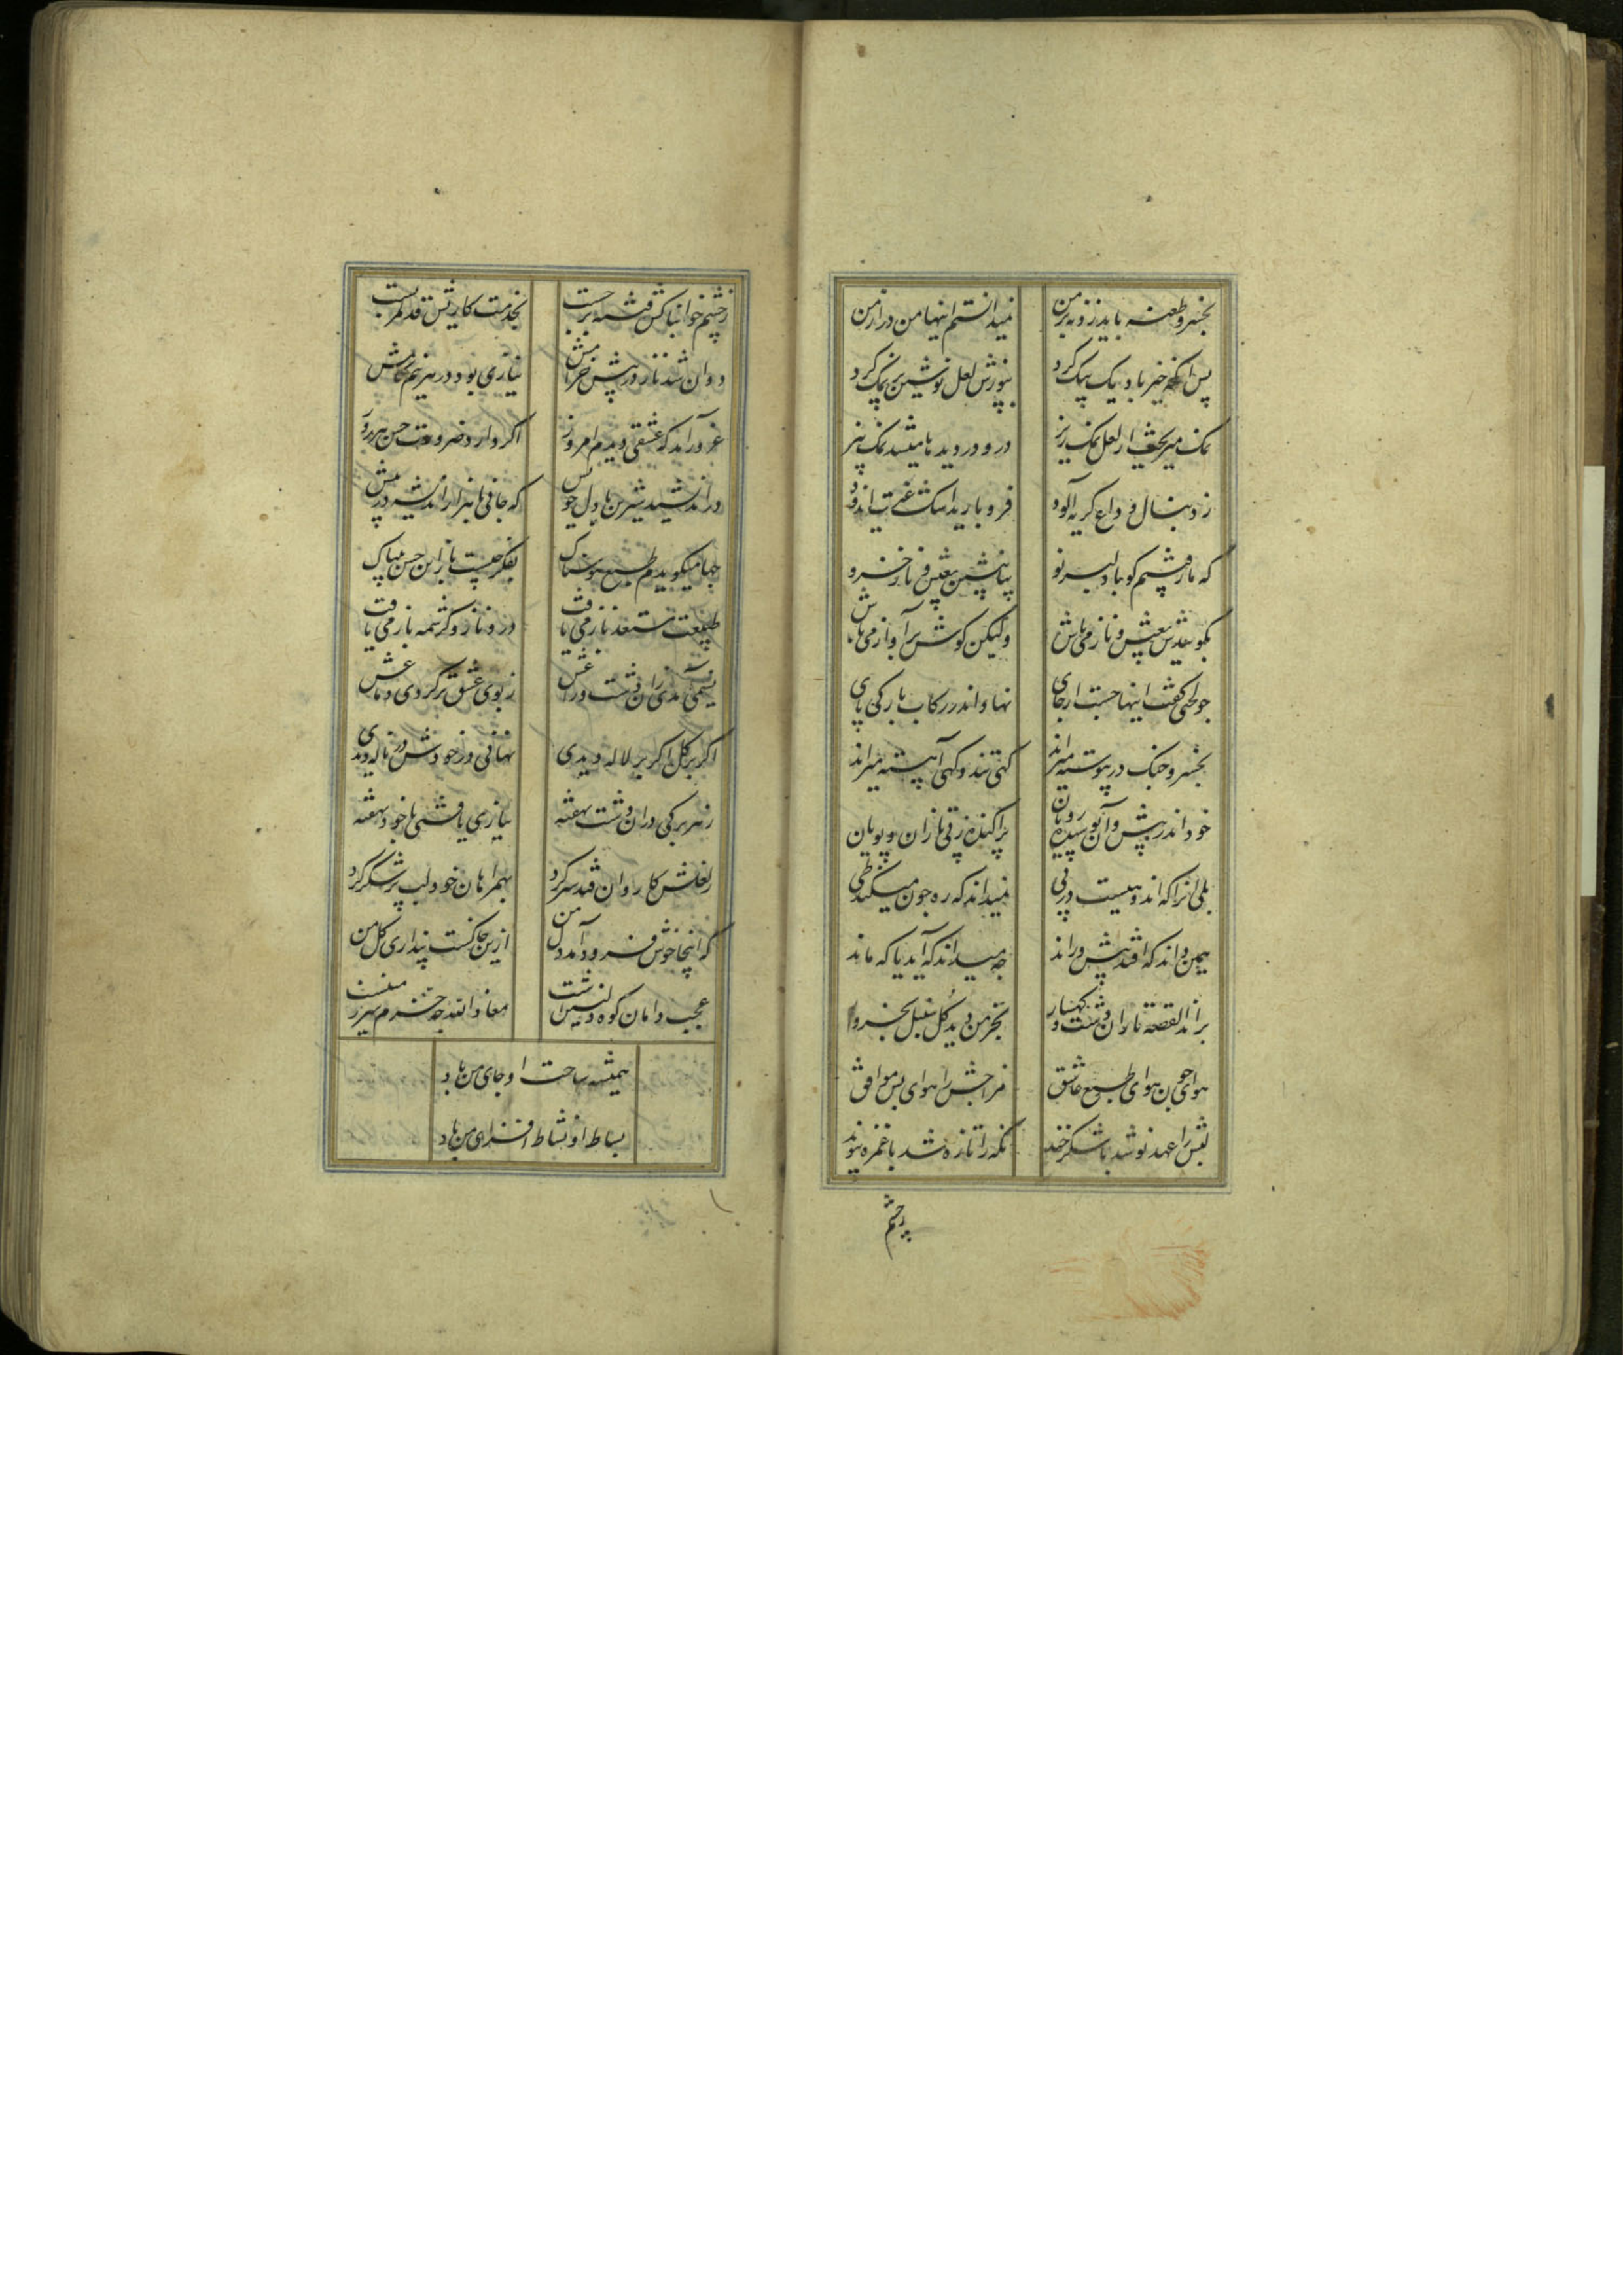 بخسرو طعنه باید زد نه بر من نمیدانستم اینها من در ارمن
پس انگه خیر باد یک بیک کرد بپوزش لعل نوشین پر نمک کرد
نمک میریخت از لعل نمک ریز درو در دیدها میشد نمک بیز
ز دنبال وداع گریه آلود فرو بارید اشک غیرت اندود
که ما رفتیم گو با دلبر نو بیا بنشین بعیش و ناز خسرو
بگو بعیش و ناز می باش ولیکن گوش بر آواز می باش
چو لختی گفت اینها جست از جای نهاد اندر رکاب بارگی پای
بخسرو جنگ در پیوسته میراند گهی تند و گهی آهسته میراند
خود اندر پیش و آن پوشیده رویان پراکنده ز پی تازان و پویان
بلی آنرا که اندوهیست در پی نمیداند که ره چون میکند طی
همین داند که افتد پیش و راند چه میداند که آید یا که ماند
براند القصه تا دان دشت و کهسار بخرمن دید گل سنبل بخروار
هوای چون هوای طبع عاشق مزاجش را هوای بس موافق
لبش را عهد نو شد با شکر خند نگه را تازه شد با غمزه پیوند
ز چشم
ز چشم خوابناکش فتنه برجست بخدمت کاریش قد کمر بست
دوان شد ناز در پیش خرامش نیازی بود در هر نیم گامش
غرور آمد که عشقی دیدم امروز اگر دارد ضرورت حسن
در اندیشید شیرین با دل خویش که جانی با هزار اندیشه در پیش
چها میگویدم طبع هوسناک بفکر چیست باز این حسن بیباک
طبیعت مستعد ناز می یافت درو ناز و کرشمه باز می یافت
نسیمی کآمدی زان دشت و راغش ز بوی عشق تر کردی دماغش
اگر بر گل اگر بر لاله دیدی نهانی در خودش ناله دیدی
ز هر برگی در آن دشت نهفته نیازی یافتی با خود نهفته
ز لعلش کاروان قند سر کرد بهمراهان خود لب پر شکر کرد
که اینجا خوش فرود آمد دل من ازین خاکست پنداری گل من
عجب دامان کوه دلنشینست معاذ الله چه خرم سرزمینست
همیشه ساحت او جای من باد
بساط او نشاط افزای من باد